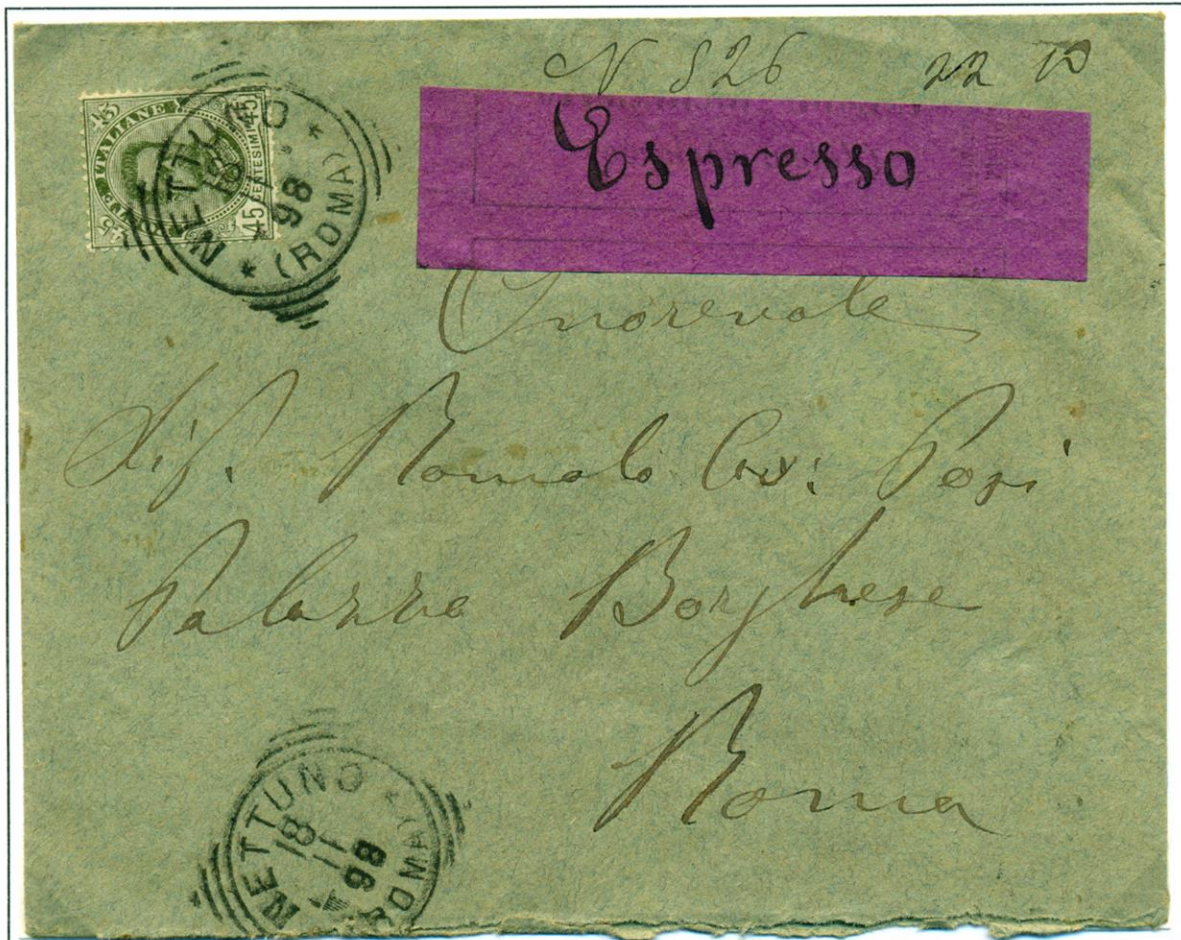 N 826 22 10
Espresso
POSTE ITALIANE
45
CENTESIMI 45
NETTUNO
(ROMA)
98
Onorevole
Sig. Romolo Cav: Posi
Palazzo Borghese
Roma
NETTUNO
18
11
98
(ROMA)